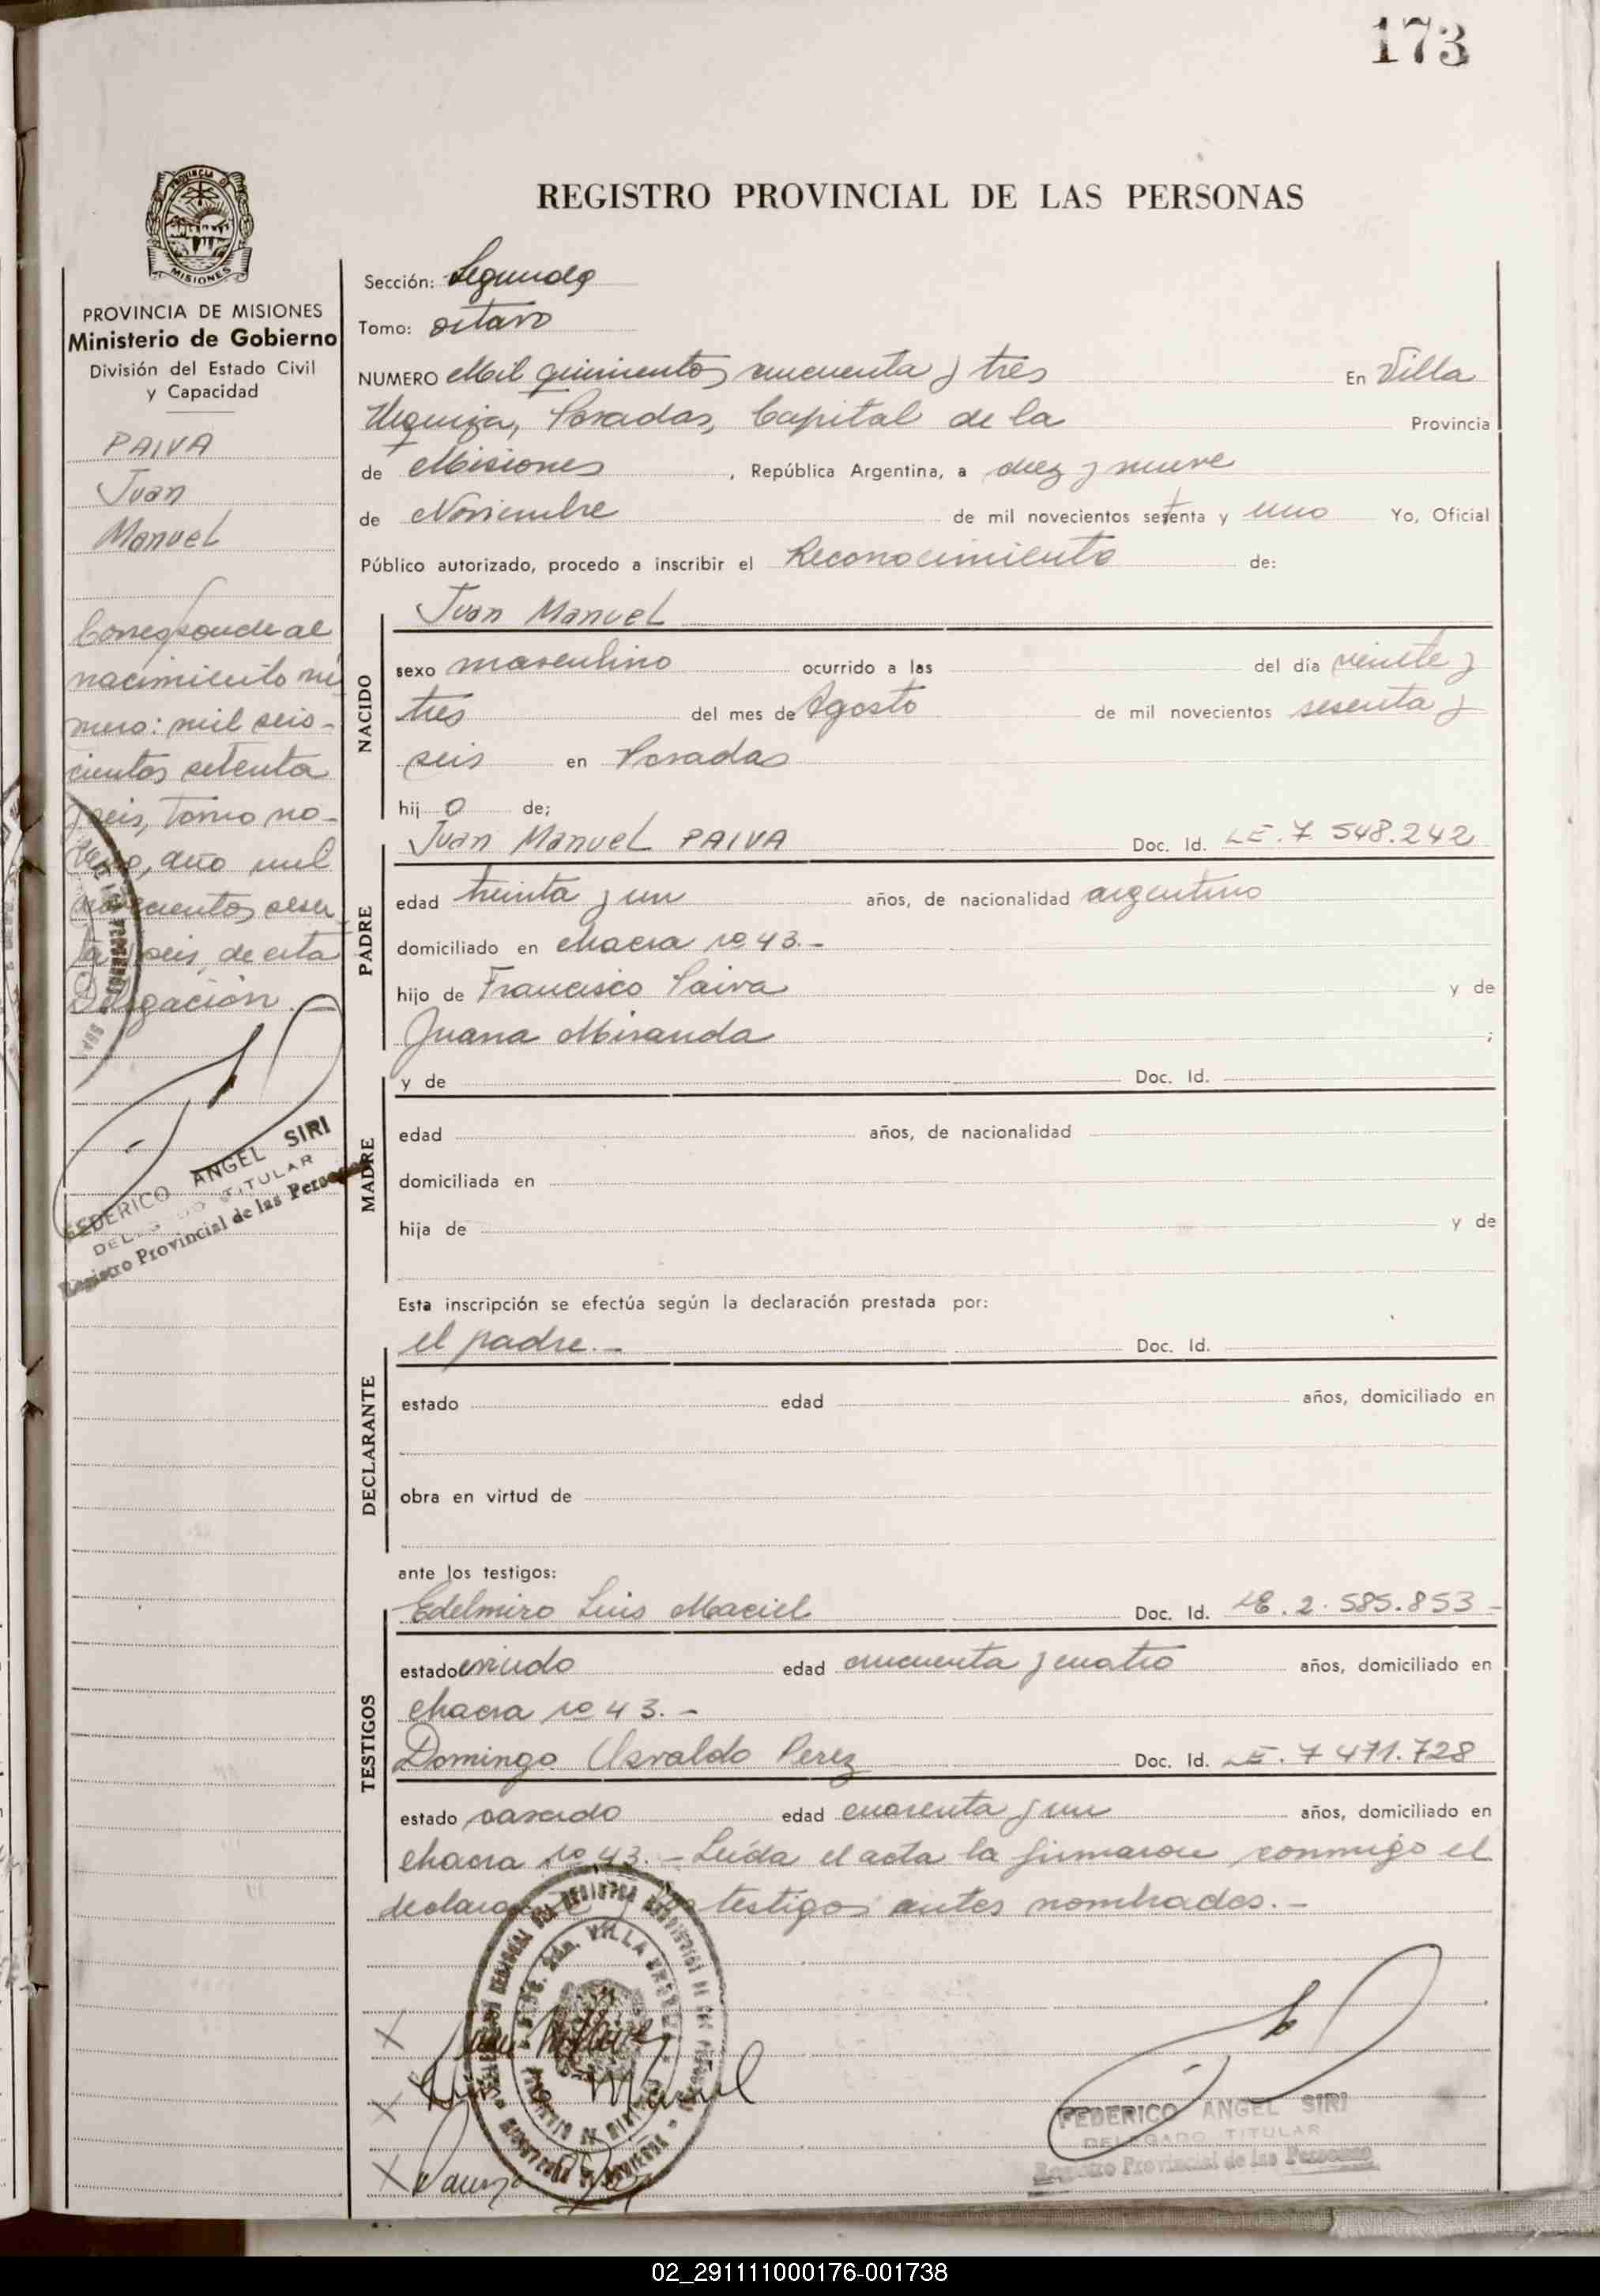 173
PROVINCIA DE
MISIONES
REGISTRO PROVINCIAL DE LAS PERSONAS
PROVINCIA DE MISIONES
Ministerio de Gobierno
División del Estado Civil
y Capacidad
PAIVA
Juan
Manuel
Corresponde al
nacimiento nú
mero: mil seis-
cientos setenta
y seis, Tomo no-
veno, año mil
novecientos sesen
ta y seis, de esta
Delegación.-
FEDERICO ANGEL SIRI
DELEGADO TITULAR
Registro Provincial de las Personas
Sección: Segunda
Tomo: octavo
NUMERO Mil quinientos cincuenta y tres En Villa
Urquiza, Posadas, Capital de la Provincia
de Misiones, República Argentina, a diez y nueve
de Noviembre de mil novecientos setenta y uno Yo, Oficial
Público autorizado, procedo a inscribir el Reconocimiento de:
NACIDO
Juan Manuel
sexo masculino ocurrido a las del día veinte y
tres del mes de Agosto de mil novecientos sesenta y
seis en Posadas
hij o de;
PADRE
Juan Manuel PAIVA Doc. Id. LE. 7 548.242
edad treinta y un años, de nacionalidad argentino
domiciliado en chacra no 43.-
hijo de Francisco Paiva y de
Juana Miranda ;
MADRE
y de Doc. Id.
edad años, de nacionalidad
domiciliada en
hija de y de
Esta inscripción se efectúa según la declaración prestada por:
DECLARANTE
el padre.- Doc. Id.
estado edad años, domiciliado en
obra en virtud de
ante los testigos:
TESTIGOS
Edelmiro Luis Maciel Doc. Id. LE. 2. 585.853-
estado viudo edad cincuenta y cuatro años, domiciliado en
chacra no 43.-
Domingo Osvaldo Perez Doc. Id. LE. 7 471.728
estado casado edad cuarenta y un años, domiciliado en
chacra no 43.- Leída el acta la firmaron conmigo el
testigos antes nombrados.-
VILLA
FEDERICO ANGEL SIRI
DELEGADO TITULAR
Registro Provincial de las Personas
02_291111000176-001738